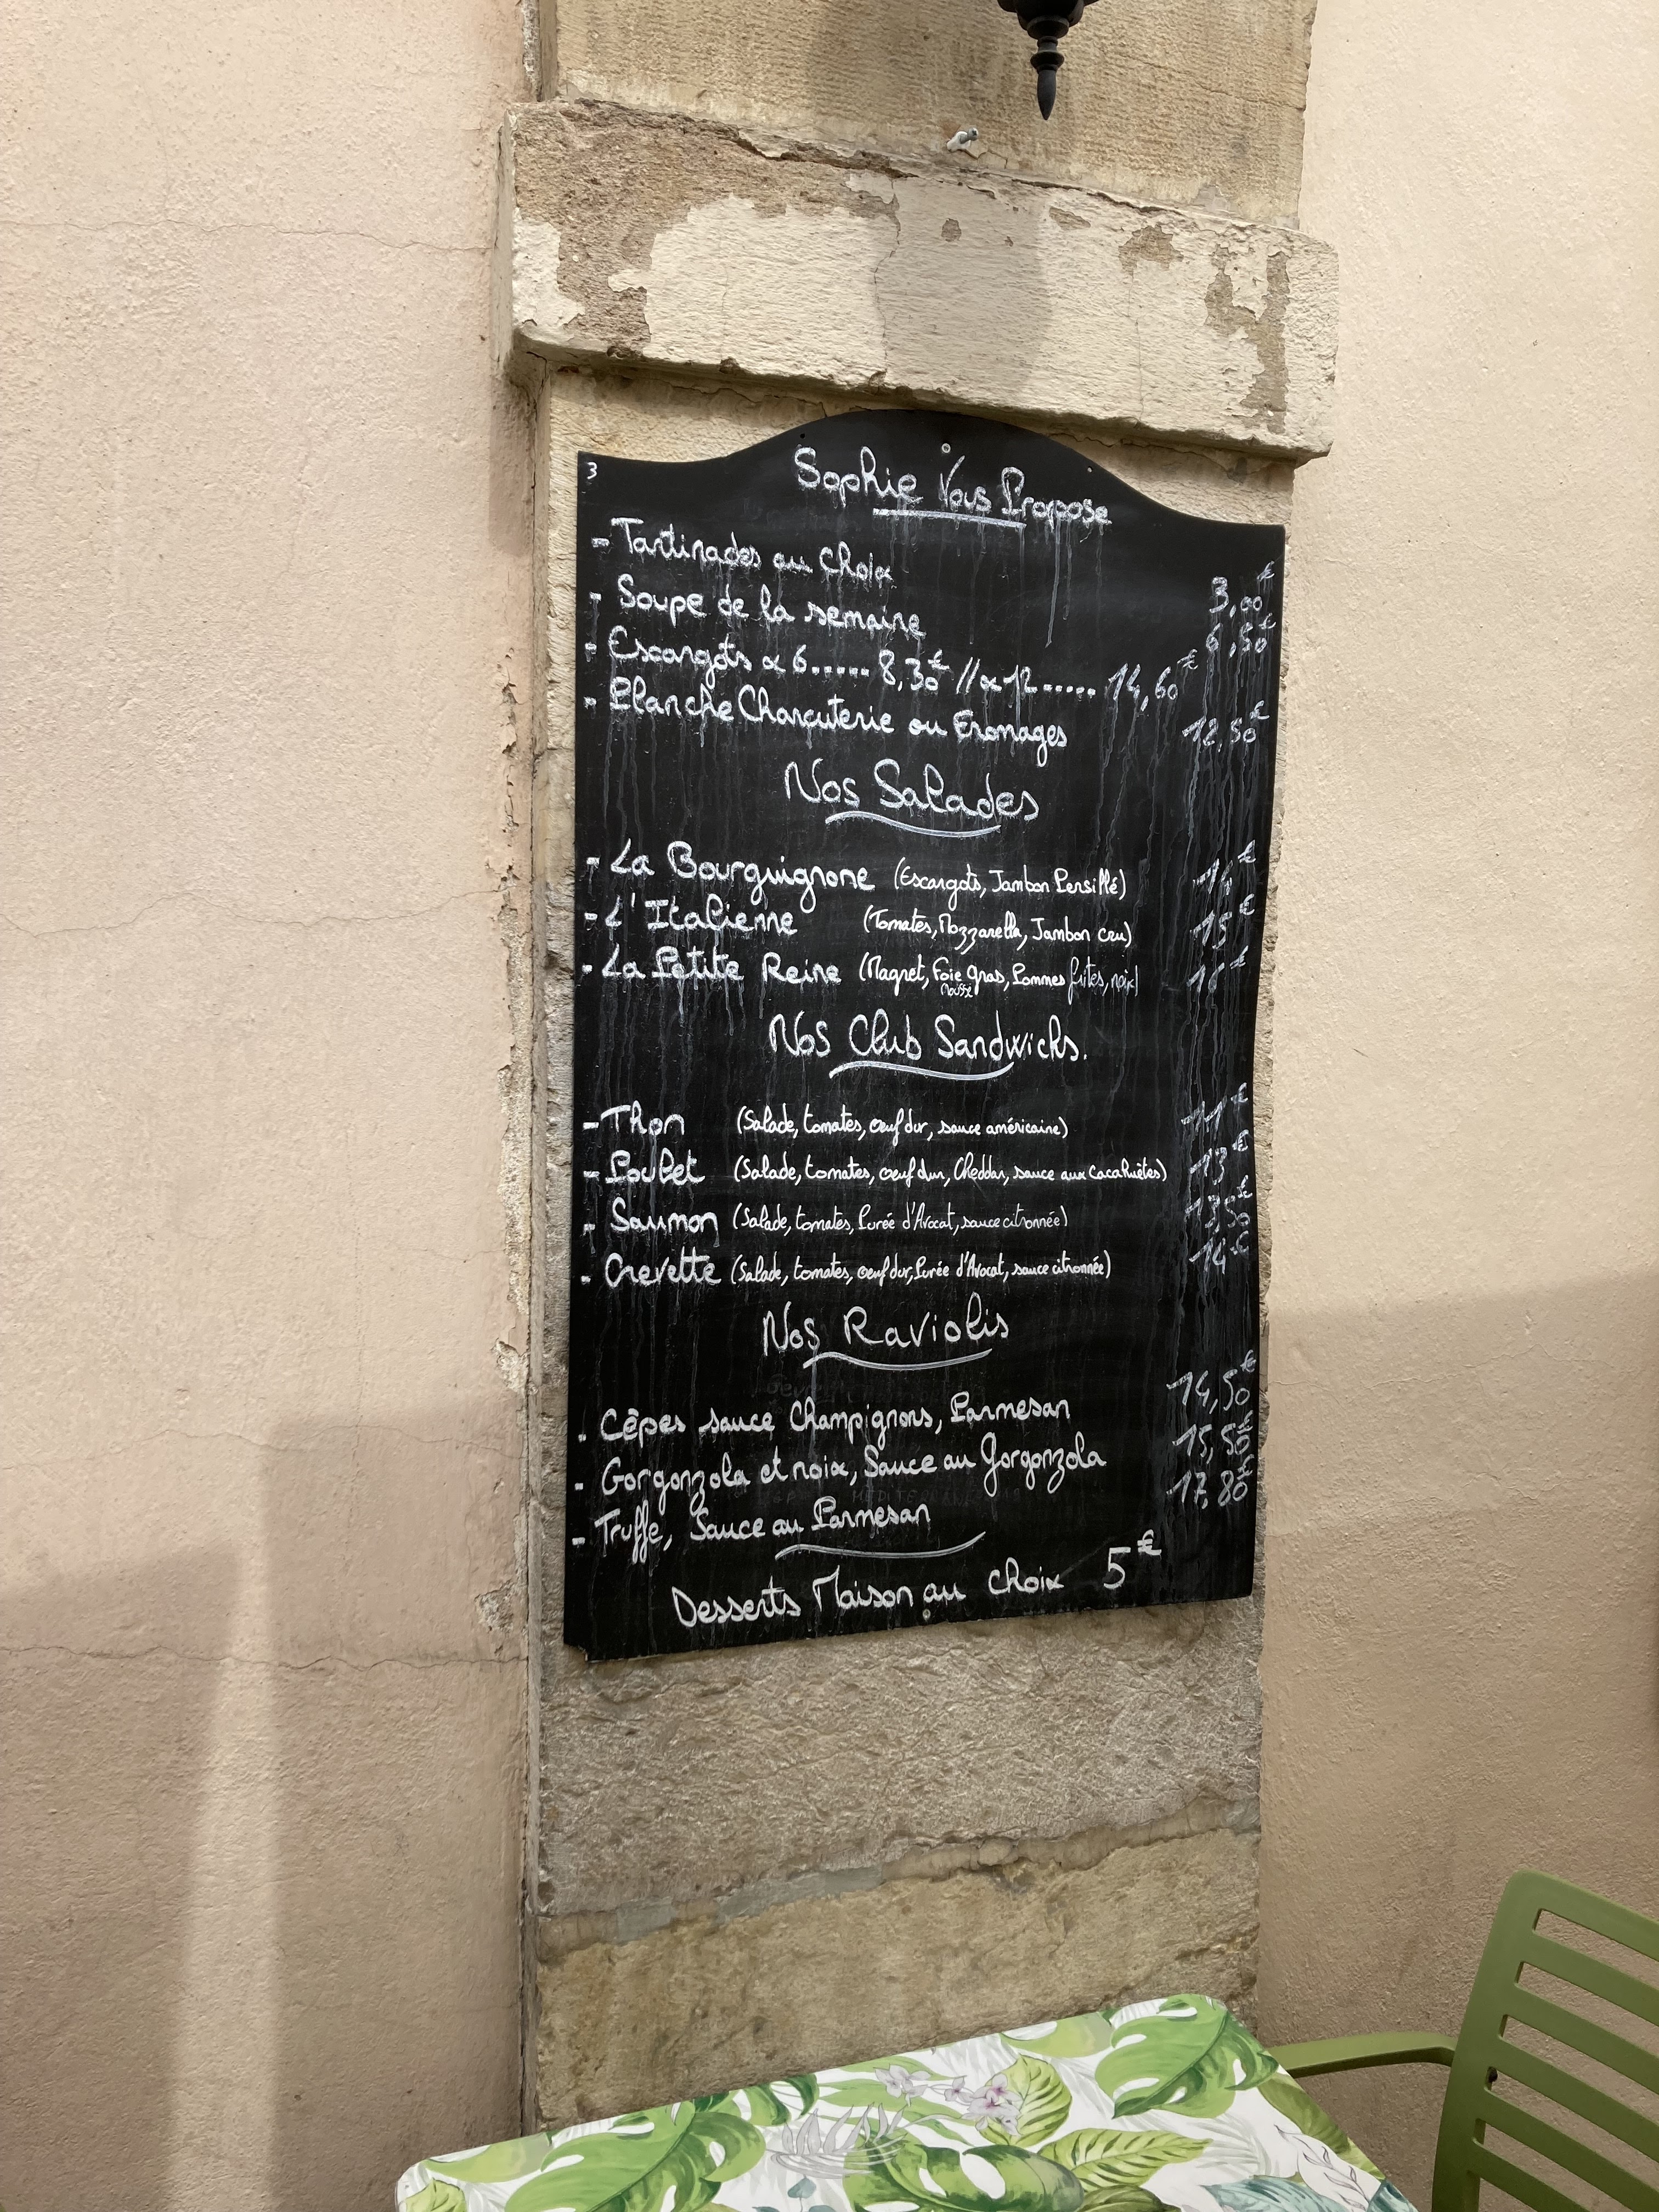 3
Sophie Vous Propose
- Tartinades au choix 3,00€
- Soupe de la semaine 6,50€
- Escargots x 6..... 8,30€ // x 12..... 14,60€
- Planche Charcuterie ou Fromages 12,50€
Nos Salades
- La Bourguignone (Escargots, Jambon Persillé)
- L'Italienne (Tomates, Mozzarella, Jambon cru) 15€
- La Petite Reine (Magret, Foie gras, Pommes frites, noix) 16€
Mousse
Nos Club Sandwichs.
- Thon (Salade, tomates, œuf dur, sauce américaine) 11€
- Poulet (Salade, tomates, œuf dur, Cheddar, sauce aux Cacahuètes) 13€
- Saumon (Salade, tomates, Purée d'Avocat, sauce citronnée) 13,50€
- Crevette (Salade, tomates, œuf dur, Purée d'Avocat, sauce citronnée) 14€
Nos Raviolis
- Cêpes sauce Champignons, Parmesan 14,50€
- Gorgonzola et noix, Sauce au Gorgonzola 15,50€
- Truffe, Sauce au Parmesan 17,80€
Desserts Maison au choix 5€